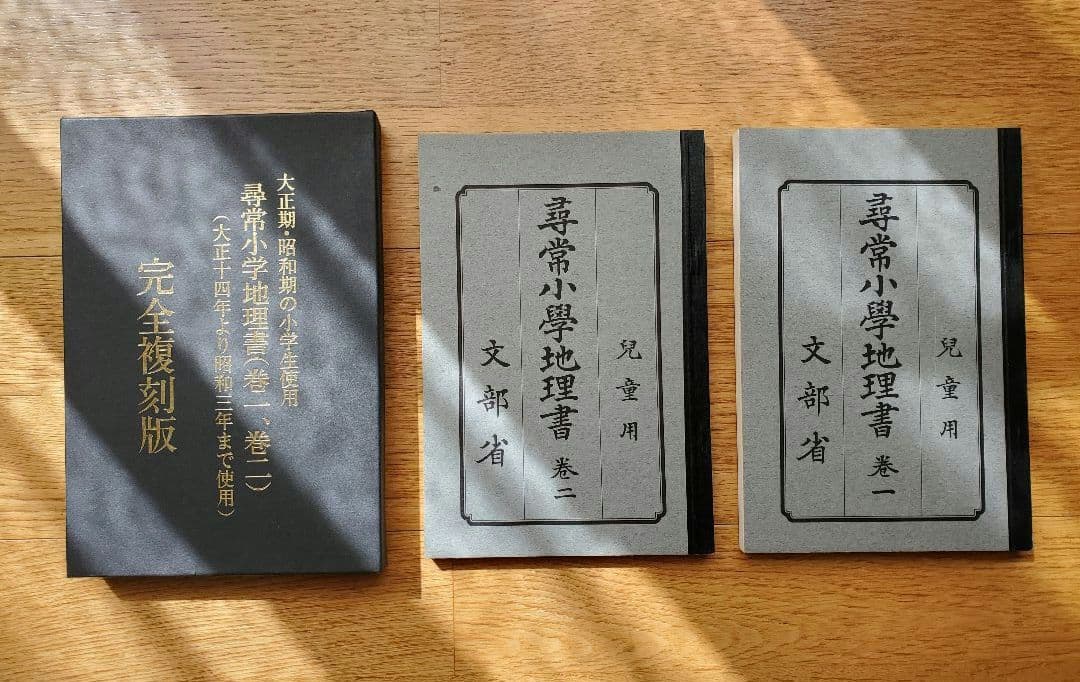 大正期・昭和期の小学生使用
尋常小学地理書(巻一、巻二)
(大正十四年より昭和三年まで使用)
完全複刻版
兒童用
尋常小學地理書 卷二
文部省
兒童用
尋常小學地理書 卷一
文部省